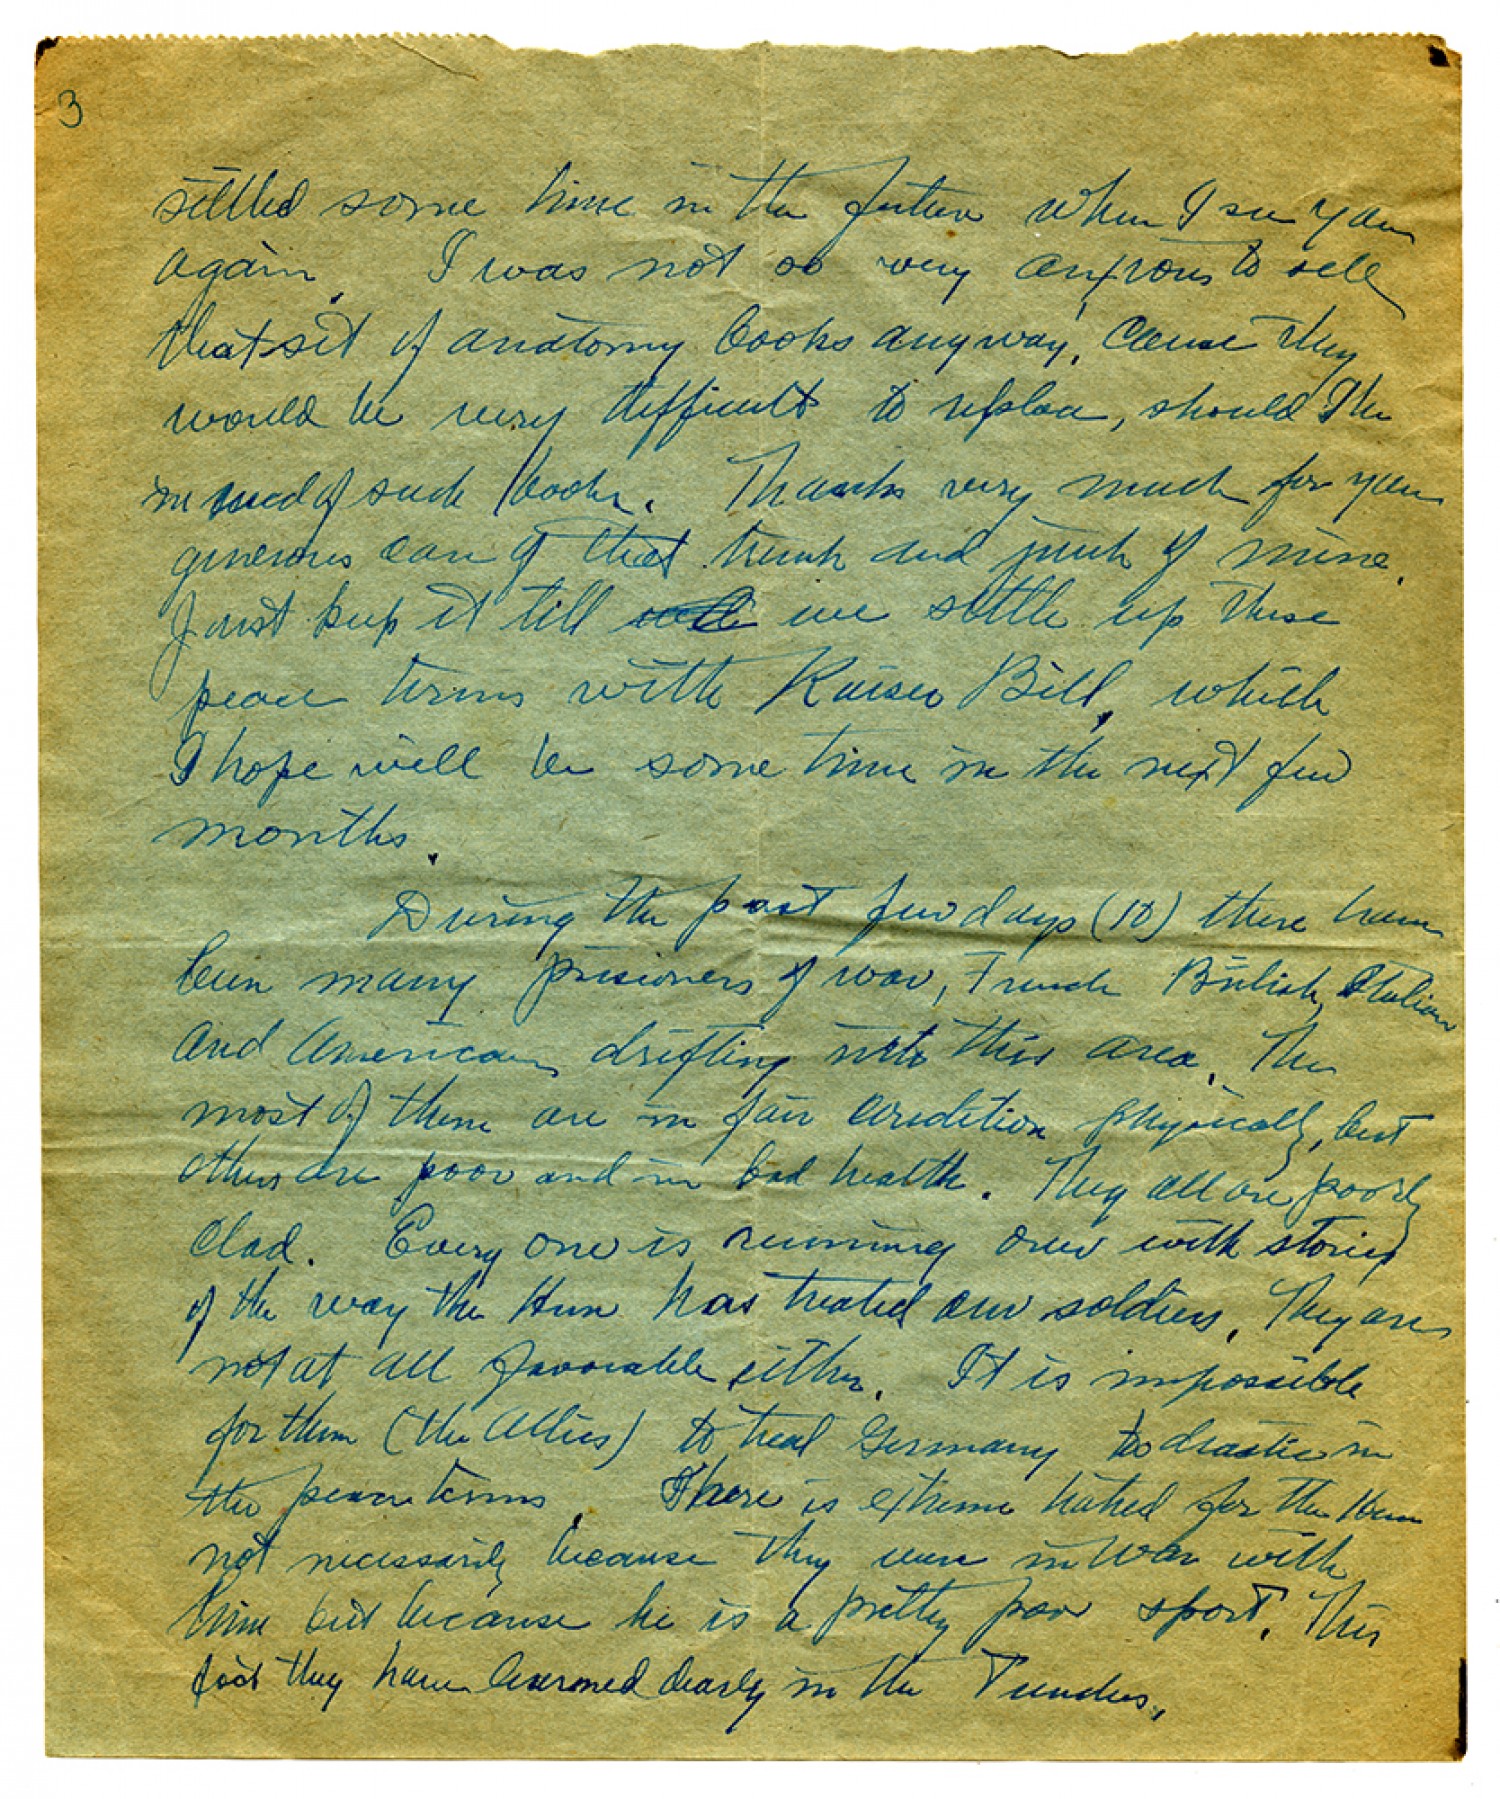 3
settled some time in the future when I see you
again. I was not so very anxious to sell
that set of anatomy books anyway, cause they
would be very difficult to replace, should I be
in need of such books. Thanks very much for your
generous care of that trunk and junk of mine.
Just keep it till we settle up these
peace terms with Kaiser Bill, which
I hope will be some time in the next few
months.
During the past few days (10) there have
been many prisioners of war, French British, Italian
and American, drifting into this area. The
most of them are in fair condition physically, but
others are poor and in bad health. They all are poorly
clad. Every one is running over with stories
of the way the Hun has treated our soldiers. They are
not at all favorable either. It is impossible
for them (the Allies) to treat Germany to drastic in
the peace terms. There is extreme hatred for the Hun
not necessarily because they were in war with
him but because he is a pretty poor sport. This
fact they have learned dearly in the Trenches.